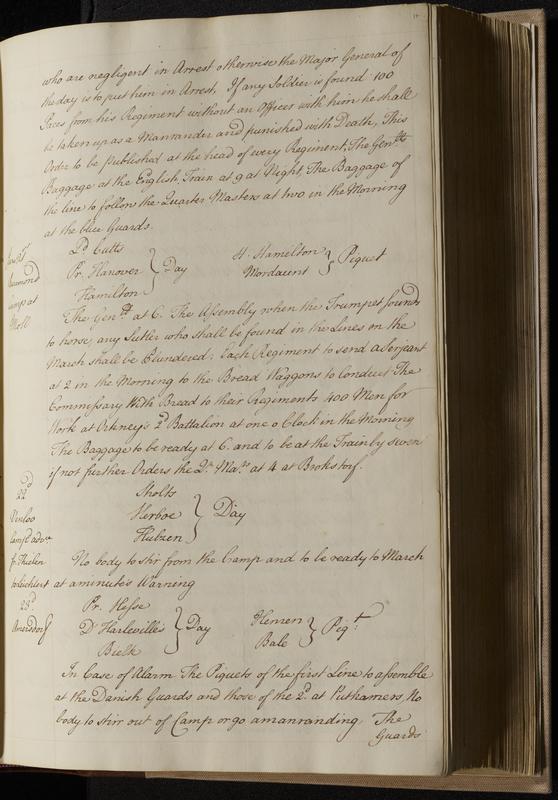 who are negligent in Arrest otherwise the Major General of
the day is to put him in Arrest, If any Soldier is found 100
Paces from his Regiment without an Officer with him he shall
be taken up as a Manrander and punished with Death, This
Order to be published at the head of every Regiment, The Genlls
Baggage at the English Train at 9 at Night, The Baggage of
the line to follow the Quarter Masters at two in the Morning
at the blue Guards.
Ld Cutts
Pr. Hanover } Day
Hamilton
H. Hamelton
Mordaunt } Piquet
Camp at
Moll
The Genll at 6. The Assembly when the Trumpet sounds
to horse, any Sutler who shall be found in the Lines on the
March shall be Plundered; Each Regiment to send a Serjeant
at 2 in the Morning to the Bread Waggons to Conduct The
Commissary With Bread to their Regiments 400 Men for
Work at Orkney's 2d Battalion at one o Clock in the Morning
The Baggage to be ready at 6. and to be at the Train by seven
if not further Orders the Qr. Mars. at 4 at Brokstorf.
22d
Venloo
Sholts
Herboe } Day
Hubzen
No body to stir from the Camp and to be ready to March
at a minute's Warning
23d
Pr. Hesse
D'Harleville's } Day
Bielk
Hemen
Bale } Piqt.
In Case of Alarm The Piquets of the first Line to assemble
at the Danish Guards and those of the 2d at Puthamers No
body to stirr out of Camp or go amanranding The
Guards